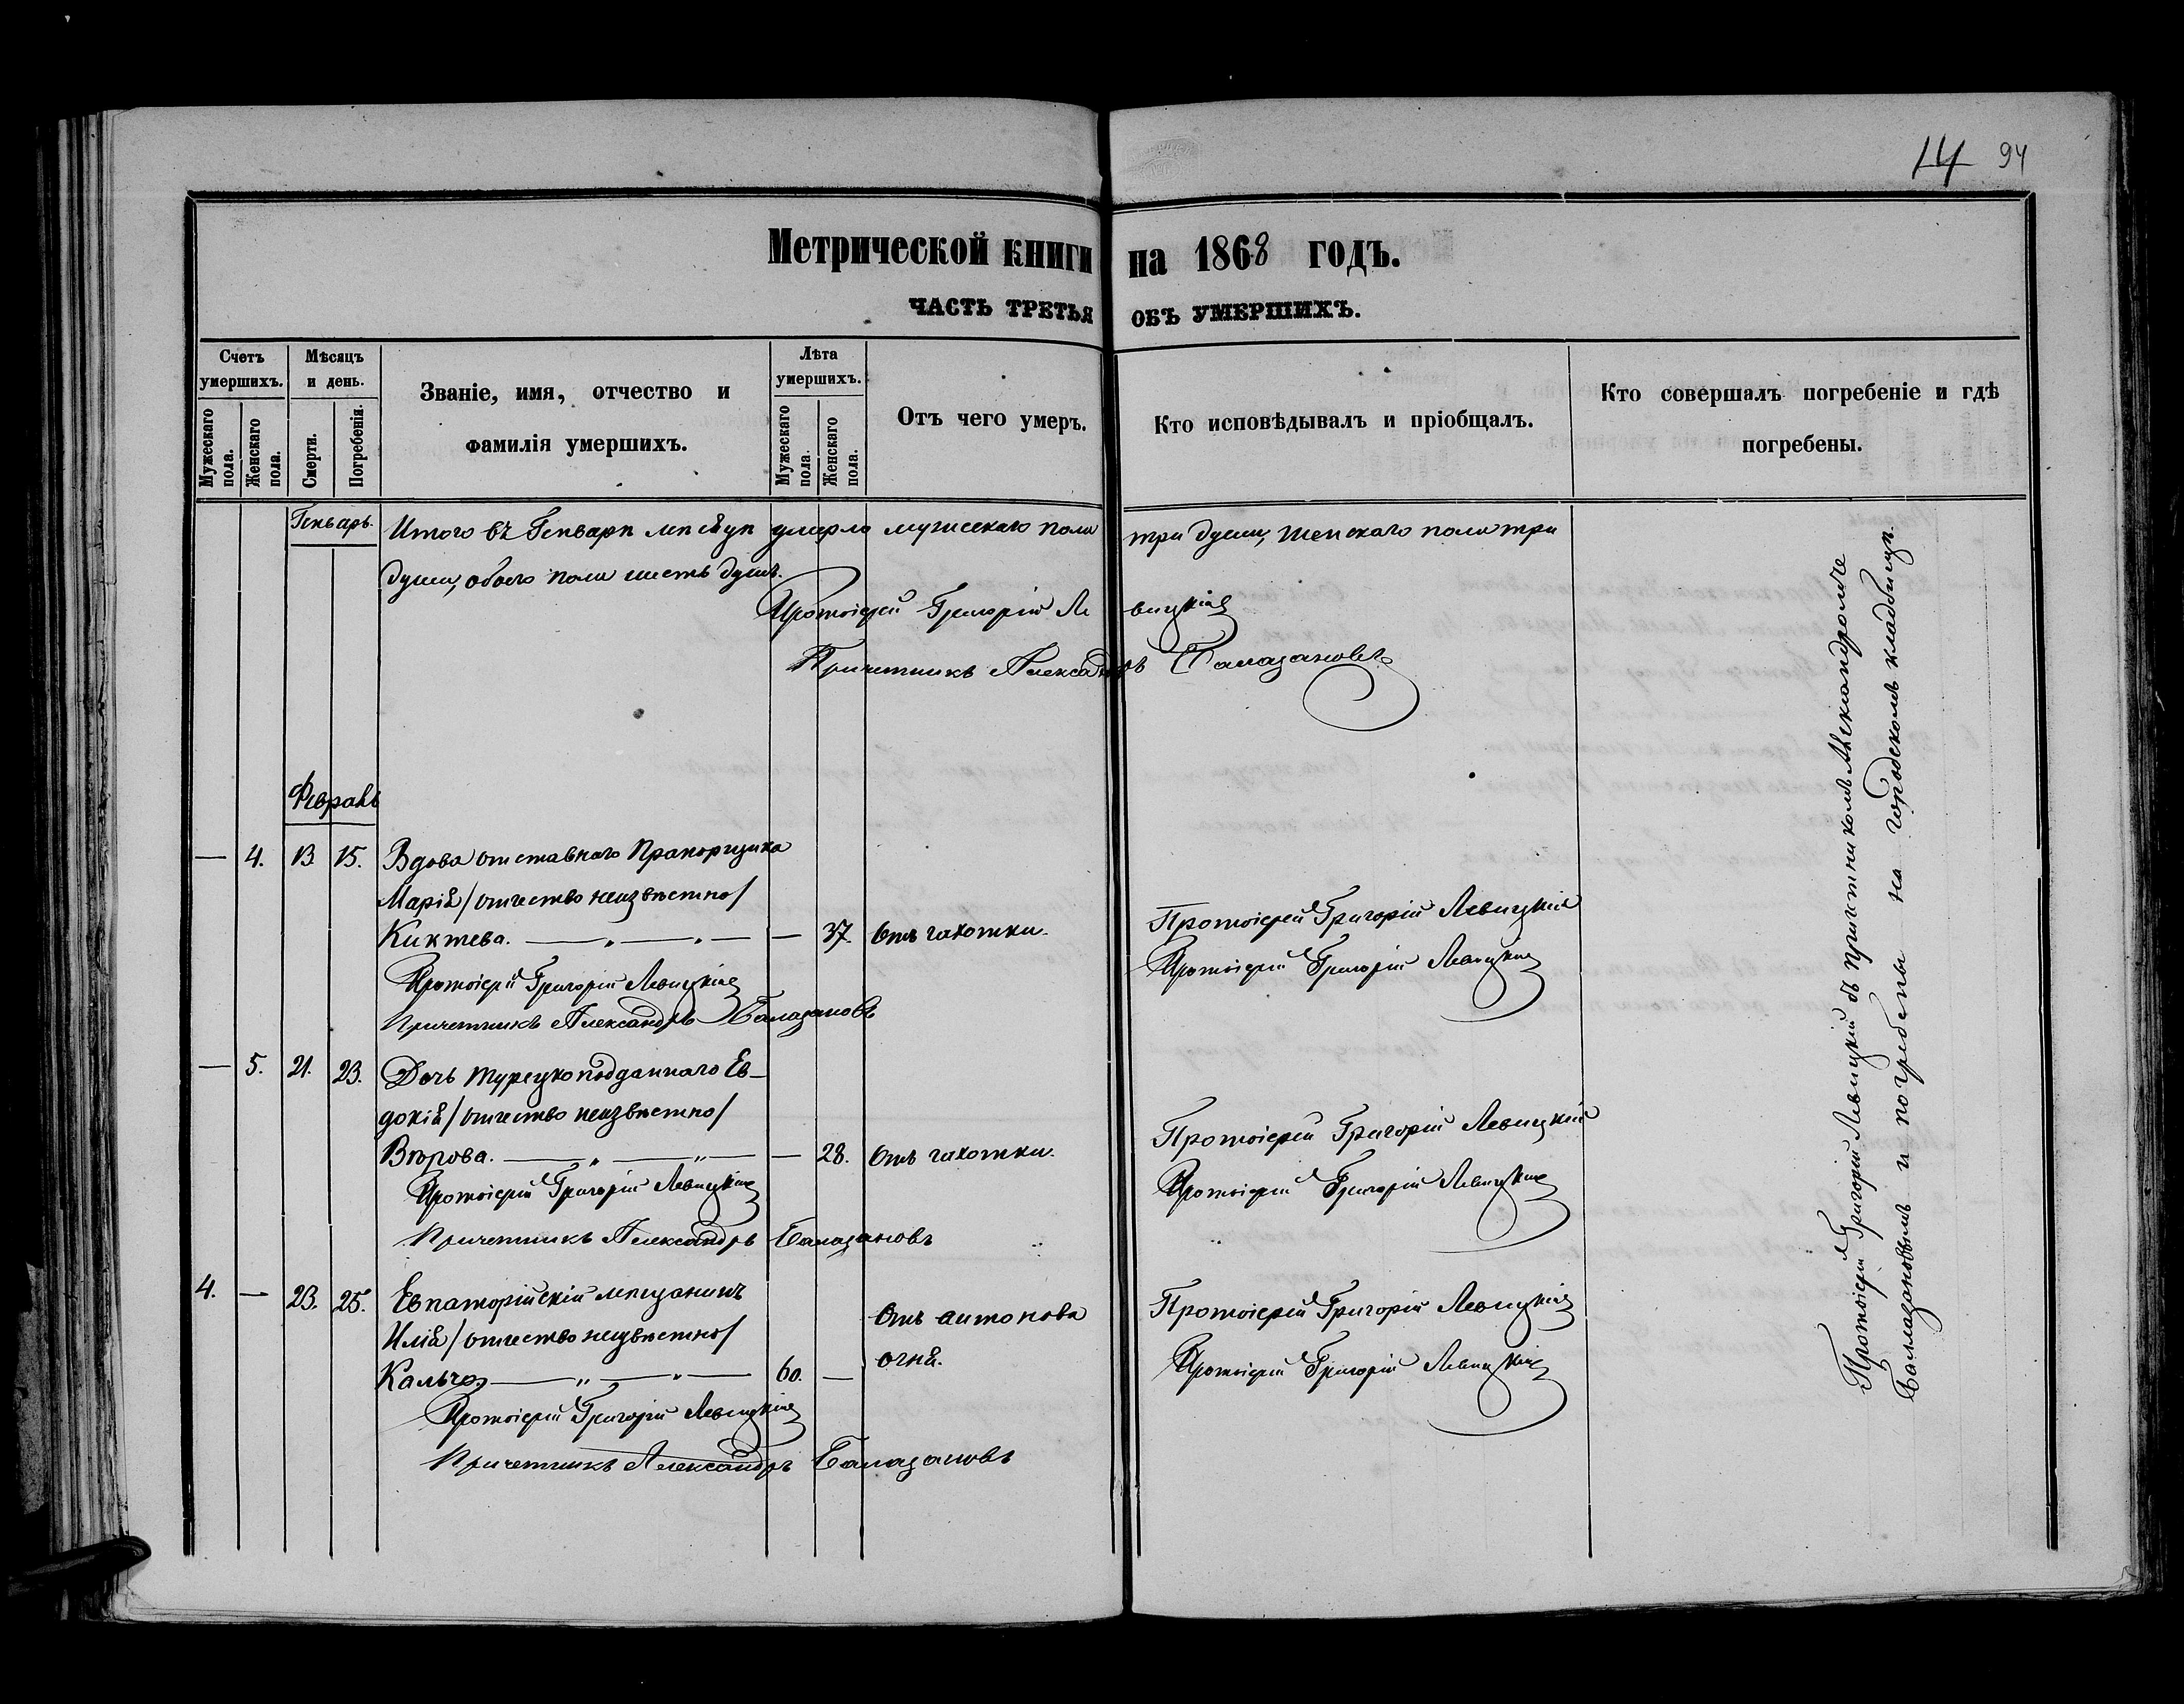 14 94
Метрической книги на 1868 годъ.
ЧАСТЬ ТРЕТЬЯ ОБЪ УМЕРШИХЪ.
Счетъ умершихъ.
Мужескаго пола.
Женскаго пола.
Мѣсяцъ и день.
Смерти.
Погребенія.
Званіе, имя, отчество и
фамилія умершихъ.
Лѣта умершихъ.
Мужескаго пола.
Женскаго пола.
Отъ чего умеръ.
Кто исповѣдывалъ и пріобщалъ.
Кто совершалъ погребеніе и гдѣ
погребены.
Генварь.
Итого въ Генварѣ мѣсяцѣ умерло мужескаго пола три души, женскаго пола три
души, обоего пола шесть душъ.
Протоіерей Григорій Левицкій
Причетникъ Александръ Баллазановъ
Февраль
— 4. 13 15. Вдова отставнаго Прапорщика
Марія /отчество неизвѣстно/
Киктева. — „ — „ — — 37. Отъ чахотки. Протоіерей Григорій Левицкій
Протоіерей Григорій Левицкій Протоіерей Григорій Левицкій
Причетникъ Александръ Баллазановъ
— 5. 21. 23. Дочь турецкоподданнаго Ев-
докія /отчество неизвѣстно/ Протоіерей Григорій Левицкій
— „ — „ — — 28. Отъ чахотки.
Протоіерей Григорій Левицкій Протоіерей Григорій Левицкій
Причетникъ Александръ Баллазановъ
4. — 23. 25. Евпаторійскій мѣщанинъ Отъ антонова Протоіерей Григорій Левицкій
Илія /отчество неизвѣстно/ огня.
— „ — „ — 60. — Протоіерей Григорій Левицкій
Протоіерей Григорій Левицкій
Причетникъ Александръ Баллазановъ
Протоіерей Григорій Левицкій съ причетникомъ Александромъ
Баллазановымъ и погребены на городскомъ кладбищѣ.